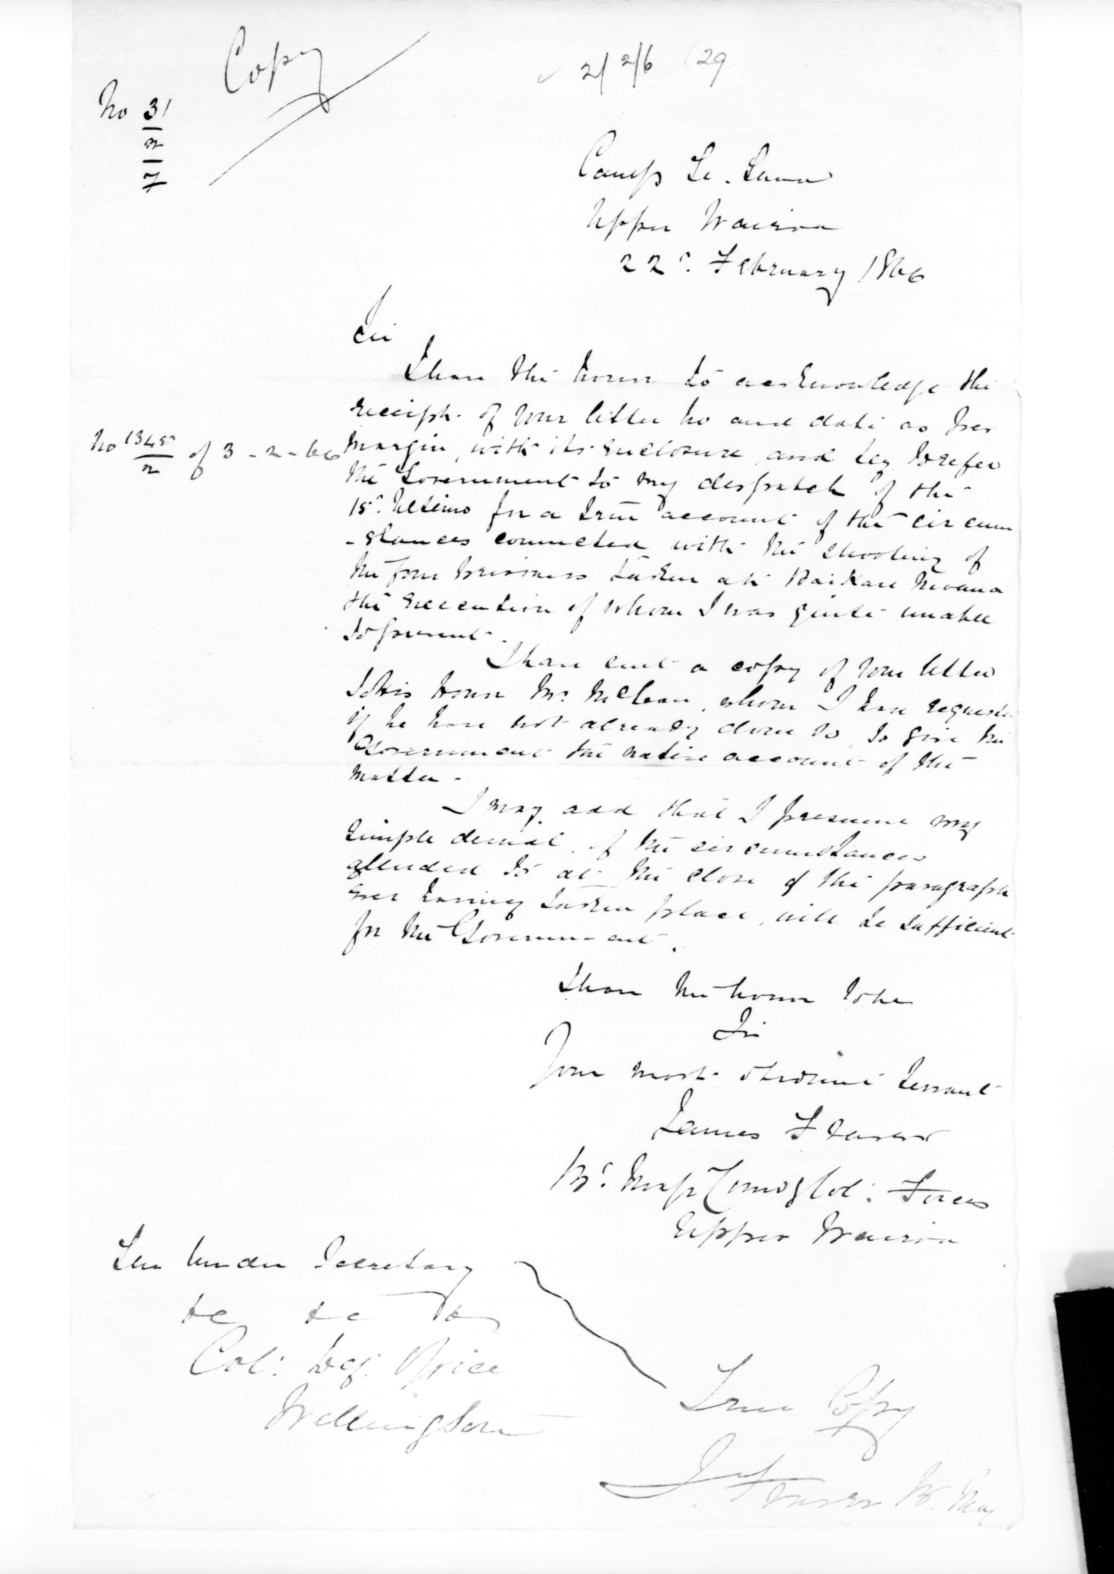 Copy
No 31
2
7
2/ 2/6 (29
Camp
Upper Wairoa
22d. February 1866
Sir
I have the honor to acknowledge the
receipt of your letter No and date as per
No 1345/2 of 3-2-66
margin, with its enclosure, and beg to refer
the Government to my despatch of the
15th. Ultimo for a true account of the circum
-stances connected with the shooting of
the four prisoners taken at Waikare Moana
the execution of whom I was quite unable
to prevent.
I have sent a copy of your letter
to His Honor Mr. McLean, whom I have requested
if he have not already done so, to give the
Government the native account of the
matter.
I may add that I presume my
simple denial of the circumstances
alluded to at the close of the paragraph
ever having taken place, will be sufficient
for the Government.
I have the honor to be
Sir
Your most obedient Servant
James Fraser
Bt. Major Comdg Col: Forces
Upper Wairoa
Under Secretary
&c &c &c
Col: Def. Office
Wellington
True Copy
J. Fraser B. Maj